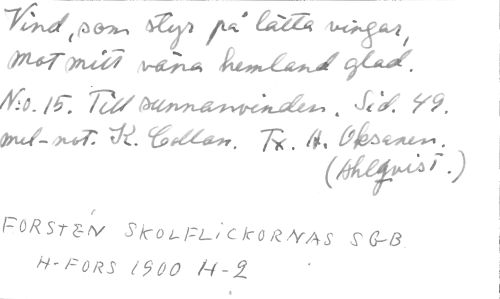 Vind, som styr på lätta vingar,
mot mitt väna hemland glad.
N:o. 15. Till sunnanvinden. Sid. 49.
mel-not. K. Collan. Tx. A. Oksanen.
(Ahlqvist.)
FORSTÉN SKOLFLICKORNAS SGB
H-FORS 1900 H-2